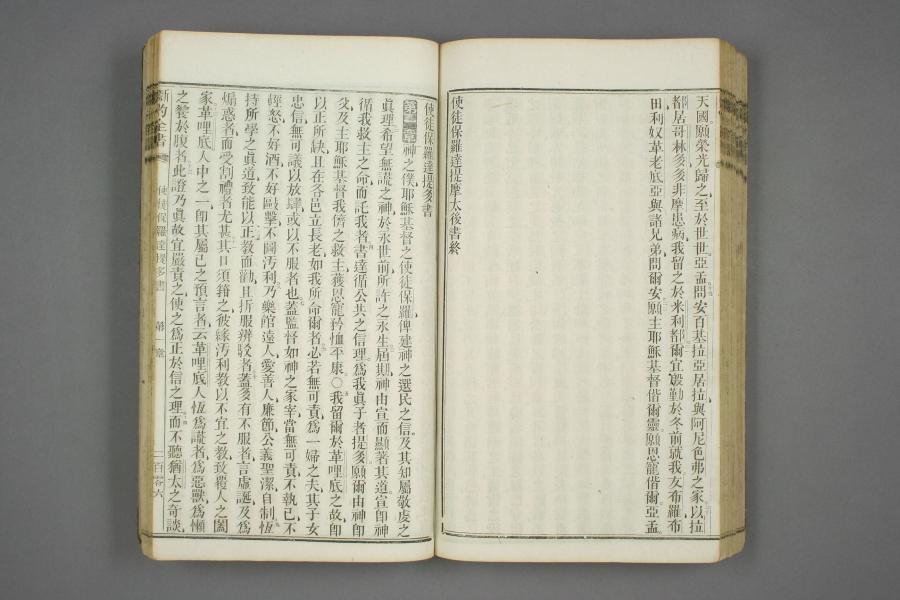 天國願榮光歸之至於世世亞孟問安百基拉亞居拉與阿尼色弗之家以拉
都居哥林多多非摩患病我留之於米利都爾宜殷勤於冬前就我友布羅布
田利奴革老底亞與諸兄弟問爾安願主耶穌基督偕爾靈願恩寵偕爾亞孟
使徒保羅達提摩太後書終
使徒保羅達提多書
第一章神之僕耶穌基督之使徒保羅俾建神之選民之信及其知屬敬虔之
眞理希望無謊之神於永世前所許之永生屆期神由宣而顯著其道宣卽神
循我救主之命而託我者書達循公共之信理爲我眞子者提多願爾由神卽
父及主耶穌基督我儕之救主獲恩寵矜恤平康〇我留爾於革哩底之故卽
以正所缺且在各邑立長老如我所命爾者必若無可責爲一婦之夫其子女
忠信無可議以放肆或以不服者也蓋監督如神之家宰當無可責不執已不
輕怒不好酒不好毆擊不圖汚利乃樂館遠人愛善人廉節公義聖潔自制恆
持所學之眞道致能以正敎而勸且折服辨駁者蓋多有不服者言虛誕及爲
煽惑者而受割禮者尤甚其口須箝之彼緣汚利敎以不宜之敎致覆人之闔
家革哩底人中之一卽其屬已之預言者云革哩底人恆爲謊者爲惡獸爲懶
之饕於腹者此證乃眞故宜嚴責之使之爲正於信之理而不聽猶太之奇談
新約全書 使徒保羅達提多書 第一章 二百零六